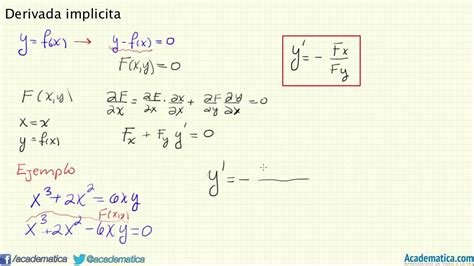 Derivada implicita
y=f(x) → y-f(x)=0
F(x,y)
y' = - Fx/Fy
F(x,y) ∂F/∂x = ∂F/∂x · ∂x/∂x + ∂F/∂y ∂y/∂x = 0
x=x
y=f(x) Fx + Fy y' = 0
Ejemplo
y' = - ——
x³+2x²=6xy
F(x,y)
x³+2x²-6xy=0
/academatica @academatica
Academatica.com